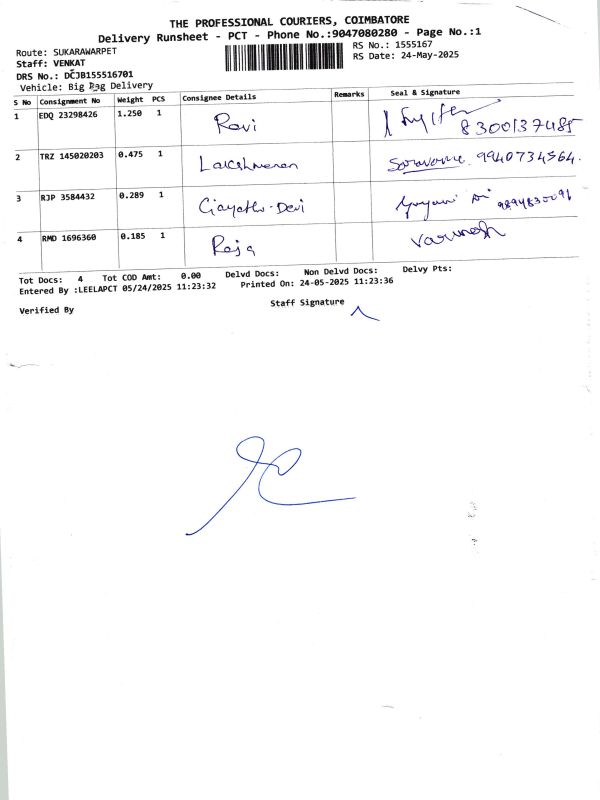 THE PROFESSIONAL COURIERS, COIMBATORE
Delivery Runsheet - PCT - Phone No.:9047080280 - Page No.:1
Route: SUKARAWARPET
Staff: VENKAT
DRS No.: DCJB155516701
Vehicle: Big Bag Delivery
RS No.: 1555167
RS Date: 24-May-2025
S No Consignment No Weight PCS Consignee Details Remarks Seal & Signature
1 EDQ 23298426 1.250 1 Ravi 8300137485
2 TRZ 145020203 0.475 1 Lakshmanan Saravana 9940734564.
3 RJP 3584432 0.289 1 Gayathri Devi
4 RMD 1696360 0.185 1 Raja Varunesh
Tot Docs: 4 Tot COD Amt: 0.00 Delvd Docs: Non Delvd Docs: Delvy Pts:
Entered By :LEELAPCT 05/24/2025 11:23:32 Printed On: 24-05-2025 11:23:36
Verified By Staff Signature